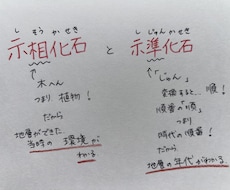 し そう か せき
示相化石
と
し じゅん か せき
示準化石
木へん
つまり 植物!
だから
地層ができた
当時の 環境が
わかる
「じゅん」
変換すると…順!
順番の「順」
つまり
時代の順番!
だから
地層の年代がわかる